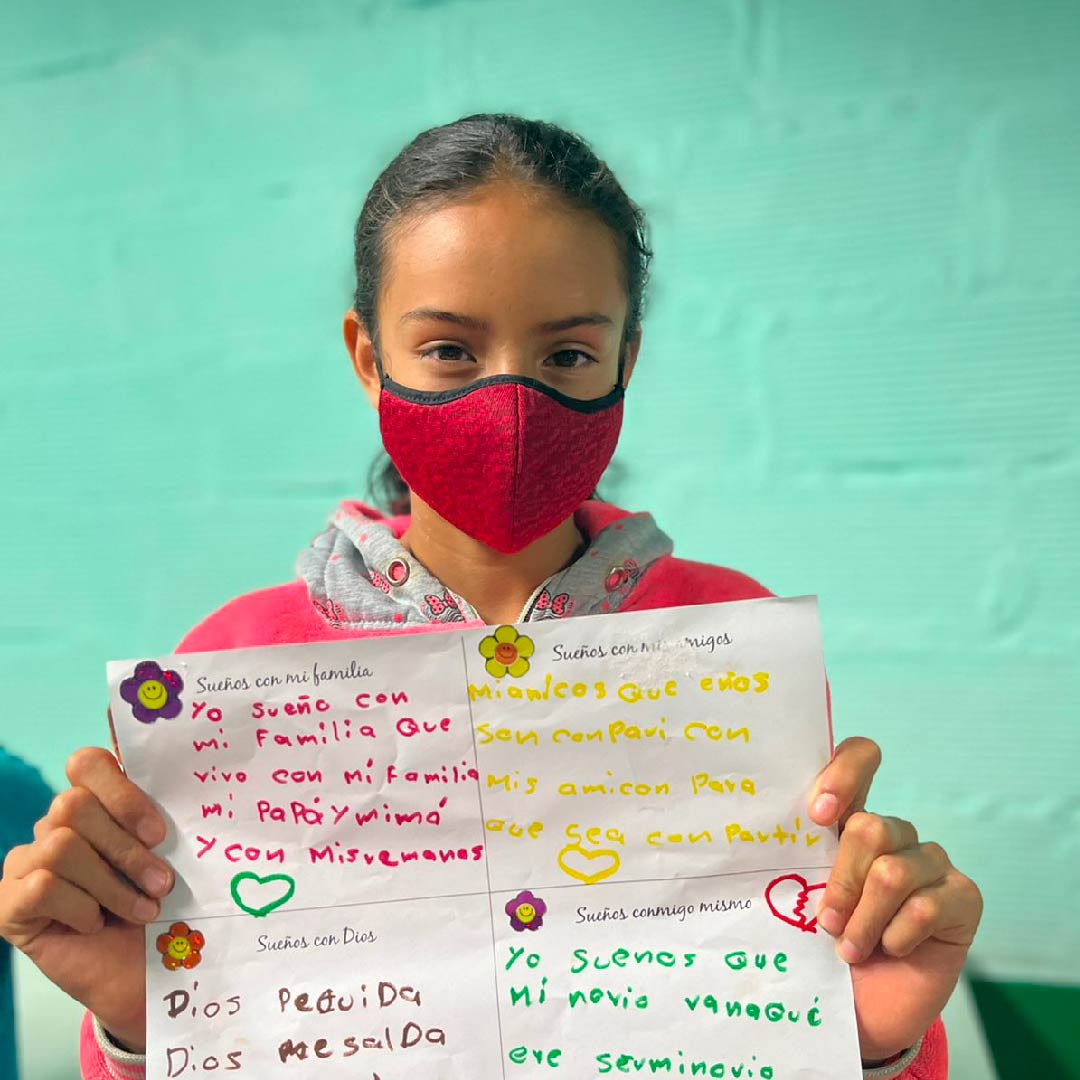 Sueños con mi familia
Yo sueño con
mi familia que
vivo con mi familia
mi PaPá y mimá
Y con Misremanos
Sueños con mis amigos
Mi amicos que enos
San conpavi con
Mis amicon Para
que sea con Partir
Sueños con Dios
Dios PequiDa
Dios me salDa
Sueños conmigo mismo
Yo suenos que
Mi novio vanaqué
ere serminovia